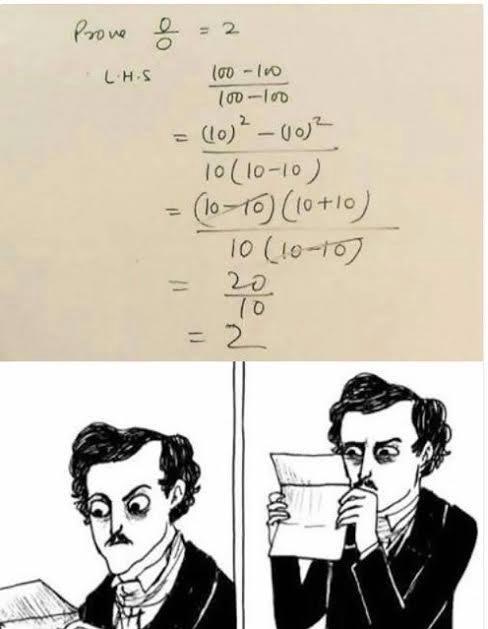 Prove 0/0 = 2
L.H.S 100-100
100-100
= (10)² - (10)²
10(10-10)
= (10-10)(10+10)
10(10-10)
= 20
10
= 2